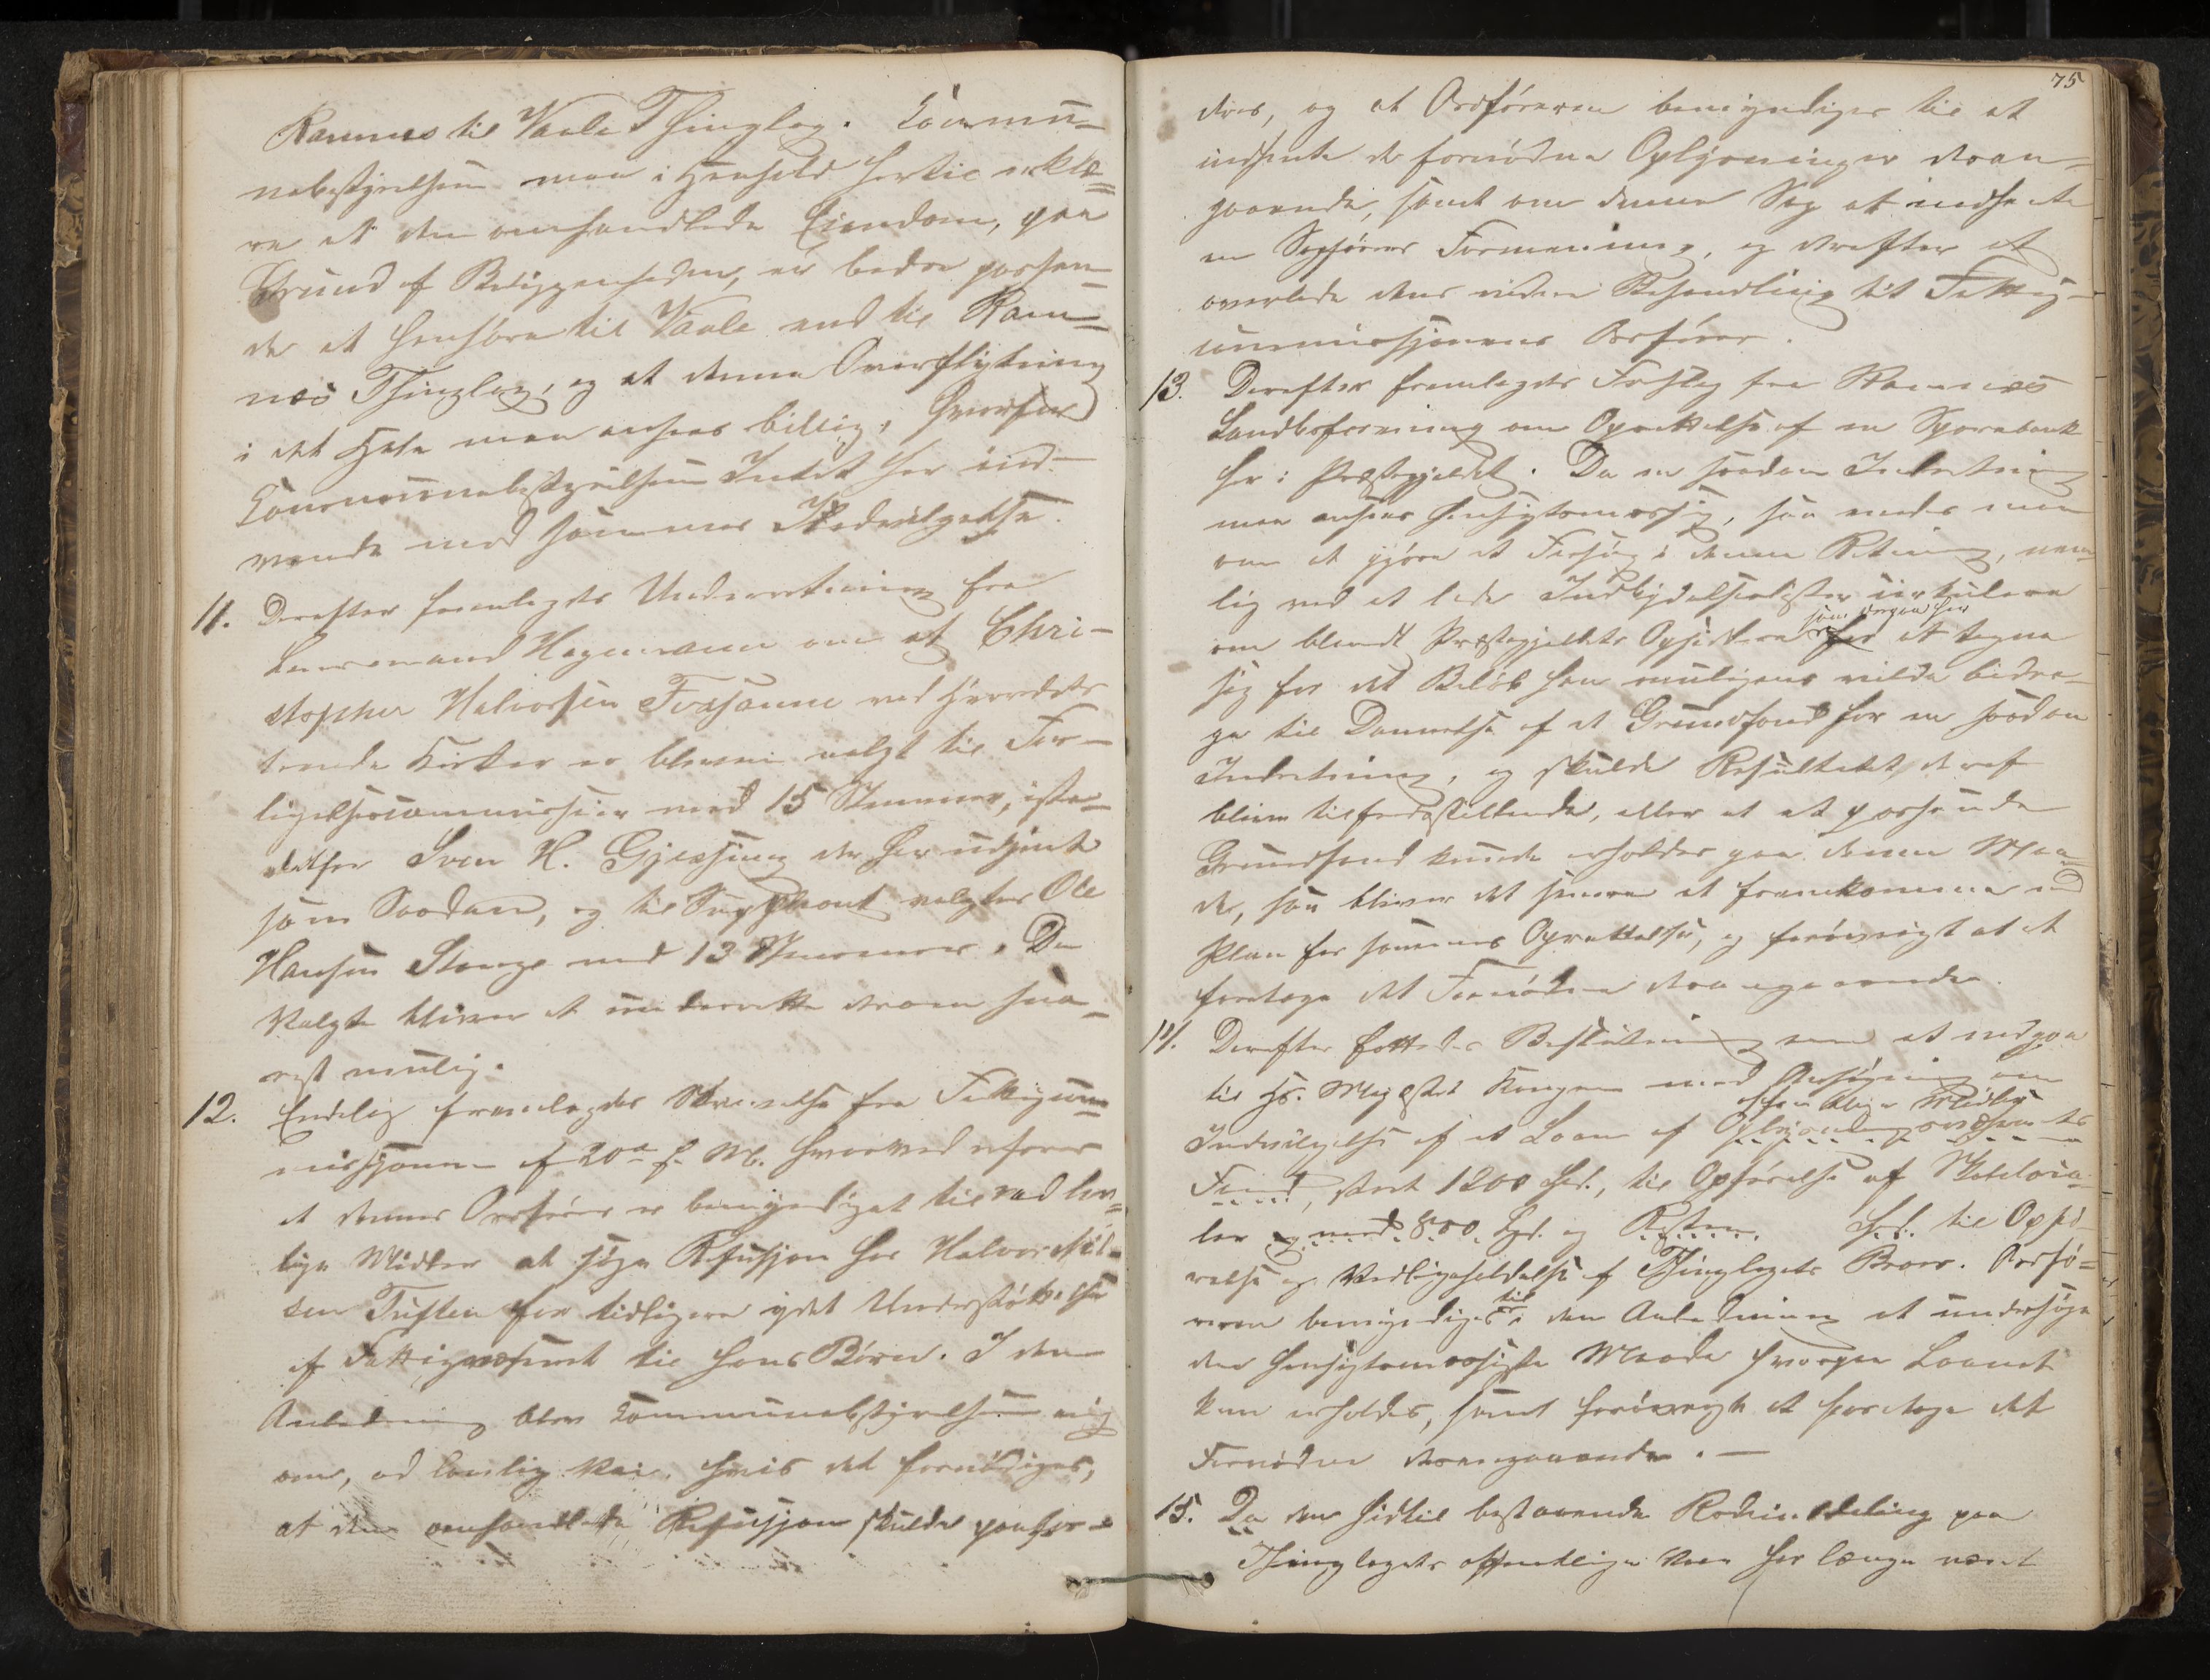 Ramnes til Vaale Thinglag. Commu-
nebestyrelsen maa i Henhold hertil erklæ-
re at den omhandlede Eiendom, paa
Grund af Beliggenheden, er bedre passen-
de at henhøre til Vaale end til Ram-
næs Thinglag, og at denne Overflytning
i det Hele maa ansees billig, hvorfor
Communebestyrelsen Intet har ind-
vende mod sammes Indvilgelse.
11. Derefter fremlagdes Underretning fra
Lensmand Hagemann om at Chri-
stopher Halvorsen Fossanne ved Herredets
trende Kirker er bleven valgt til For-
ligelsescommissair med 15 Stemmer, iste-
detfor Sven H. Gjersing der har udtjent
som Saadan, og til Suppleant valgtes Ole
Hansen Stange med 13 Stemmer. De
Valgte bliver at underrette derom sna-
rest mulig.
12. Endelig fremlagdes Skrivelse fra Fattigcom-
missjonen af 20de f. M. hvorved erfares
at dennes Ordfører er bemyndiget til ved lov-
lige Midler at søge Refusjon hos Halvor Nil-
sen Tuften for tidligere ydet Understøttelse
af Fattigvæsenet til hans Børn. I den
Anledning blev Communebestyrelsen enig
om, ad lovlig Vei, hvis det fornødiges,
at den omhandlede Refusjon skulde paafor-
75
dres, og at Ordføreren bemyndiges til at
indhente de fornødne Oplysninger desan-
gaaende, samt om denne Sag at indhente
en Sagførers Formening, og derefter at
overlade dens videre Behandling til Fattig-
commissjonens Ordfører.
13. Derefter fremlagdes Forslag fra Ramnes
Landboforening om Oprettelse af en Sparebank
her i Præstegjeldet. Da en saadan Indretning
maa ansees hensigtsmæssig, saa enedes man
om at gjøre et Forsøg i denne Retning, nem-
lig ved at lade Indbydelseslister cirkulere
om blandt Præstegjeldets Opsiddere for at tegne
sig for det Beløb han muligens vilde bidra-
ge til Dannelse af et Grundfond for en saadan
Indretning, og skulde Resultatet deraf
blive tilfredsstillende, eller at et passende
Grundfond kunde erholdes paa denne Maa-
de, saa bliver det senere at fremkomme med
Plan for sammes Oprettelse, og forøvrigt at
foretage det Fornødne desangaaende.
14. Derefter fattedes Beslutning om at indgaa
til Hs. Majestet Kongen med Ansøgning om
offentlige Midler
Indvilgelse af et Laan af Oplysningsvæsenets
Fond, stort 1200 Spd., til Opførelse af Skoleloca-
ler og med 800 Spd. og Resten Spd. til Opfø-
relse og Vedligeholdelse af Thinglagets Broer. Ordfø-
reren bemyndiges i den Anledning at undersøge
den hensigtsmæssigste Maade hvorpaa Laanet
kan erholdes, samt forøvrigt at foretage det
Fornødne desangaaende. —
15. Da den hidtil bestaaende Rodeinddeling paa
Thinglagets offentlige Veie har længe været